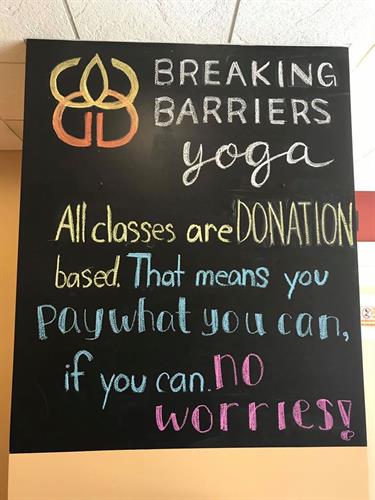 BREAKING
BARRIERS
yoga
All classes are DONATION
based. That means you
pay what you can,
if you can. no
worries!